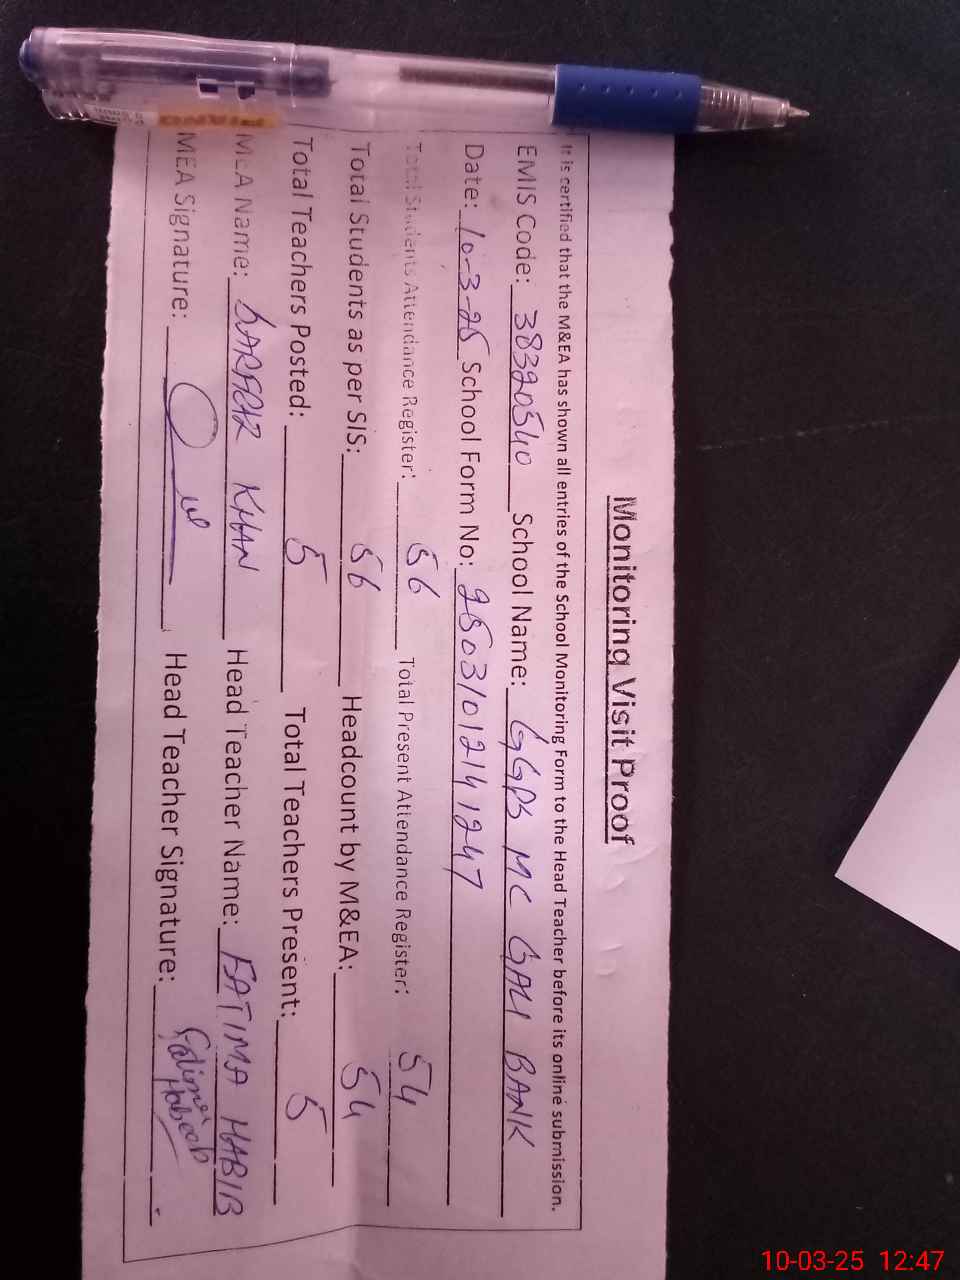 Monitoring Visit Proof
It is certified that the M&EA has shown all entries of the School Monitoring Form to the Head Teacher before its online submission.
EMIS Code: 38320540 School Name: GGPS MC GALI BANK
Date: 10-3-25 School Form No: 25031012141247
Total Students Attendance Register: 56 Total Present Attendance Register: 54
Total Students as per SIS: 56 Headcount by M&EA: 54
Total Teachers Posted: 5 Total Teachers Present: 5
MEA Name: KHAN Head Teacher Name: FATIMA HABIB
MEA Signature: Head Teacher Signature: Fatima Habeeb
PIANO
10-03-25 12:47